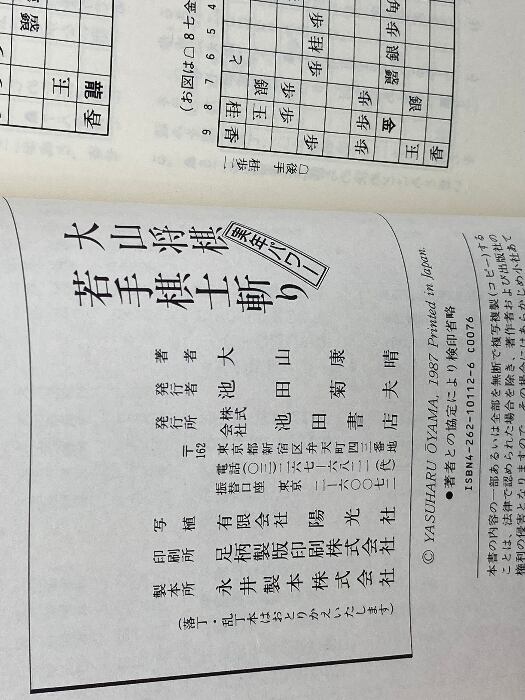 (お図は□8七金
9 8 7 6 5 4
□後手
持駒
歩二
大山将棋
実年パワー
若手棋士斬り
著者 大山康晴
発行者 池田菊夫
発行所 株式会社 池田書店
〒162 東京都新宿区弁天町四三番地
電話(〇三)二六七―六八二一(代)
振替口座 東京 二―一六〇〇七二
写植 有限会社陽光社
印刷所 足柄製版印刷株式会社
製本所 永井製本株式会社
(落丁・乱丁本はおとりかえいたします)
© YASUHARU ŌYAMA, 1987 Printed in Japan
●著者との協定により検印省略
ISBN4-262-10112-6 C0076
本書の内容の一部あるいは全部を無断で複写複製(コピー)する
ことは、法律で認められた場合を除き、著作者および出版社の
権利の侵害となりますので、その場合にはあらかじめ小社あて